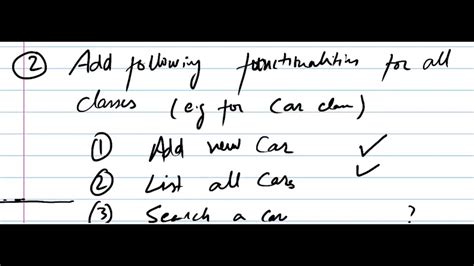 ② Add following functionalities for all
classes (e.g for Car class)
① Add new Car ✓
② List all Cars ✓
(3) Search a car ?